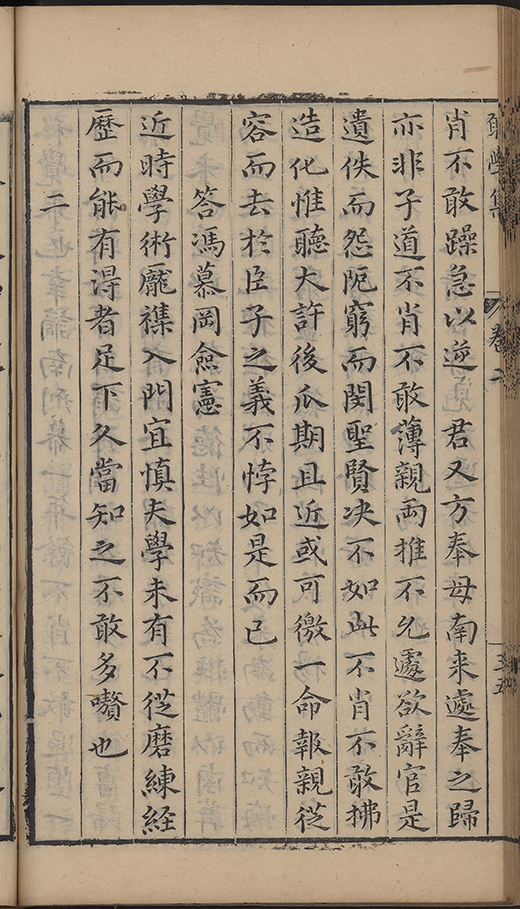 肖不敢躁急以逆　君又方奉母南来處奉之歸
亦非子道不肖不敢薄親両推不允遽欲辭官是
遺佚而怨阨窮而閔聖賢决不如此不肖不敢拂
造化惟聽大許後瓜期且近或可徼一命報親從
容而去於臣子之義不悖如是而已
答馮慕岡僉憲
近時學術厖襍入門宜慎夫學未有不從磨練經
歷而能有淂者足下久當知之不敢多嚽也
二
學集
卷二